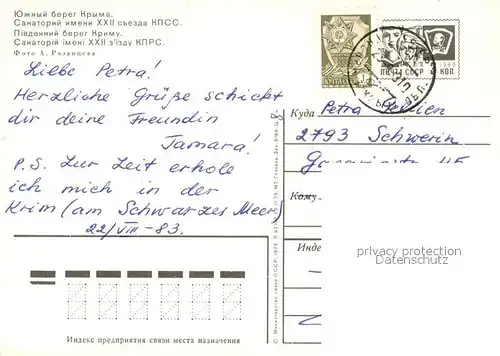 Южный берег Крыма.
Санаторий имени XXII съезда КПСС.
Південний берег Криму.
Санаторій імені XXII з'їзду КПРС.
Фото А. Рязанцева
Liebe Petra!
Herzliche Grüße schickt
dir deine Freundin
Tamara!
P.S. Zur Zeit erhole
ich mich in der
Krim (am Schwarzes Meer)
22/VIII-83.
ПОЧТА СССР
КОП
Куда Petra
2793 Schwerin
Кому
Инде
privacy protection
Datenschutz
Индекс предприятия связи места назначения